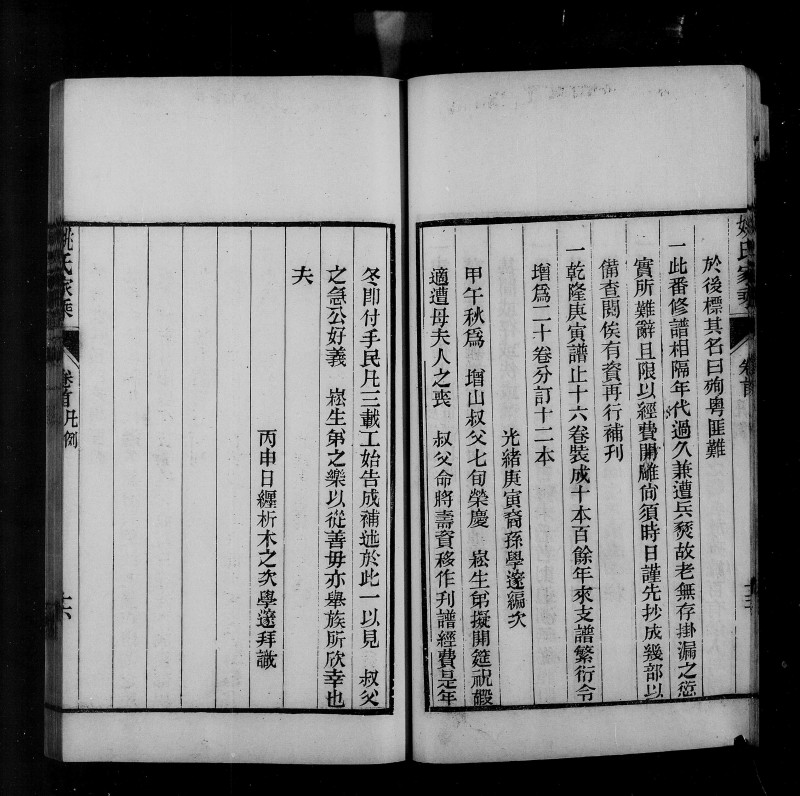 於後標其名曰殉粤匪難
一此番修譜相隔年代過久兼遭兵燹故老無存掛漏之愆
實所難辭且限以經費開雕尙須時日謹先抄成幾部以
備查閱俟有資再行補刊
一乾隆庚寅譜止十六卷裝成十本百餘年來支譜繁衍今
增爲二十卷分訂十二本
光緒庚寅裔孫學邃編次
甲午秋爲　增山叔父七旬榮慶　崧生弟擬開筵祝嘏
適遭母夫人之喪　叔父命將壽資移作刊譜經費是年
姚氏家乘　卷首
冬卽付手民凡三載工始吿成補述於此一以見　叔父
之急公好義　崧生弟之樂以從善毋亦舉族所欣幸也
夫
丙申日纏析木之次學邃拜識
姚氏家乘　卷首凡例　十六